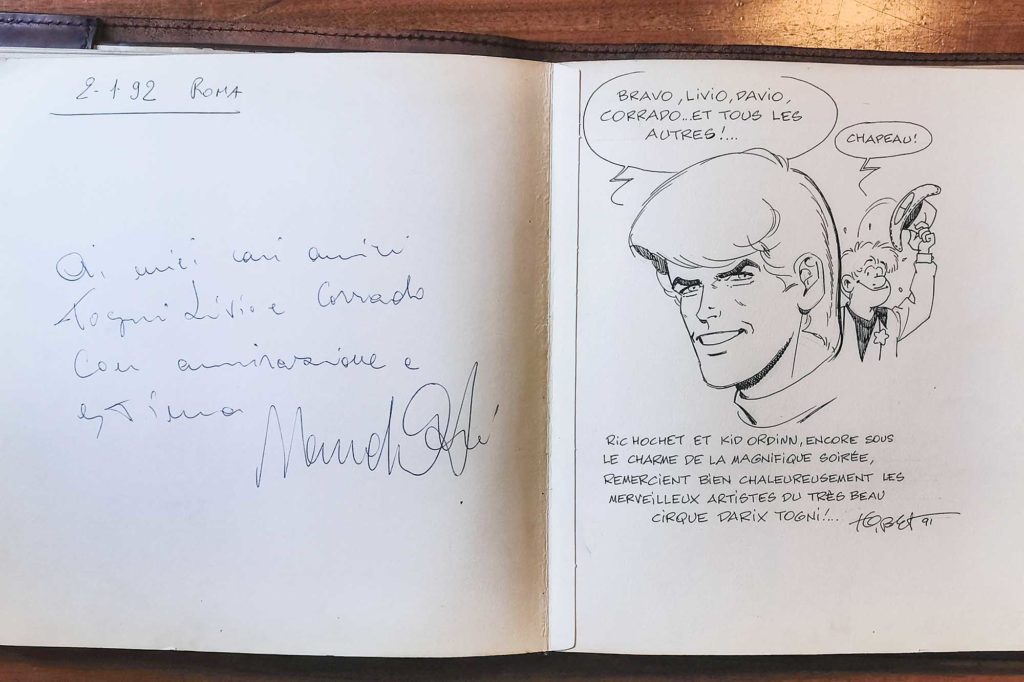 2-1-92 ROMA
Ai miei cari amici
Togni Livio e Corrado
Con ammirazione e
stima
BRAVO, LIVIO, DAVIO,
CORRADO...ET TOUS LES
AUTRES!...
CHAPEAU!
RIC HOCHET ET KID ORDINN, ENCORE SOUS
LE CHARME DE LA MAGNIFIQUE SOIRÉE,
REMERCIENT BIEN CHALEUREUSEMENT LES
MERVEILLEUX ARTISTES DU TRÈS BEAU
CIRQUE DARIX TOGNI!...
91